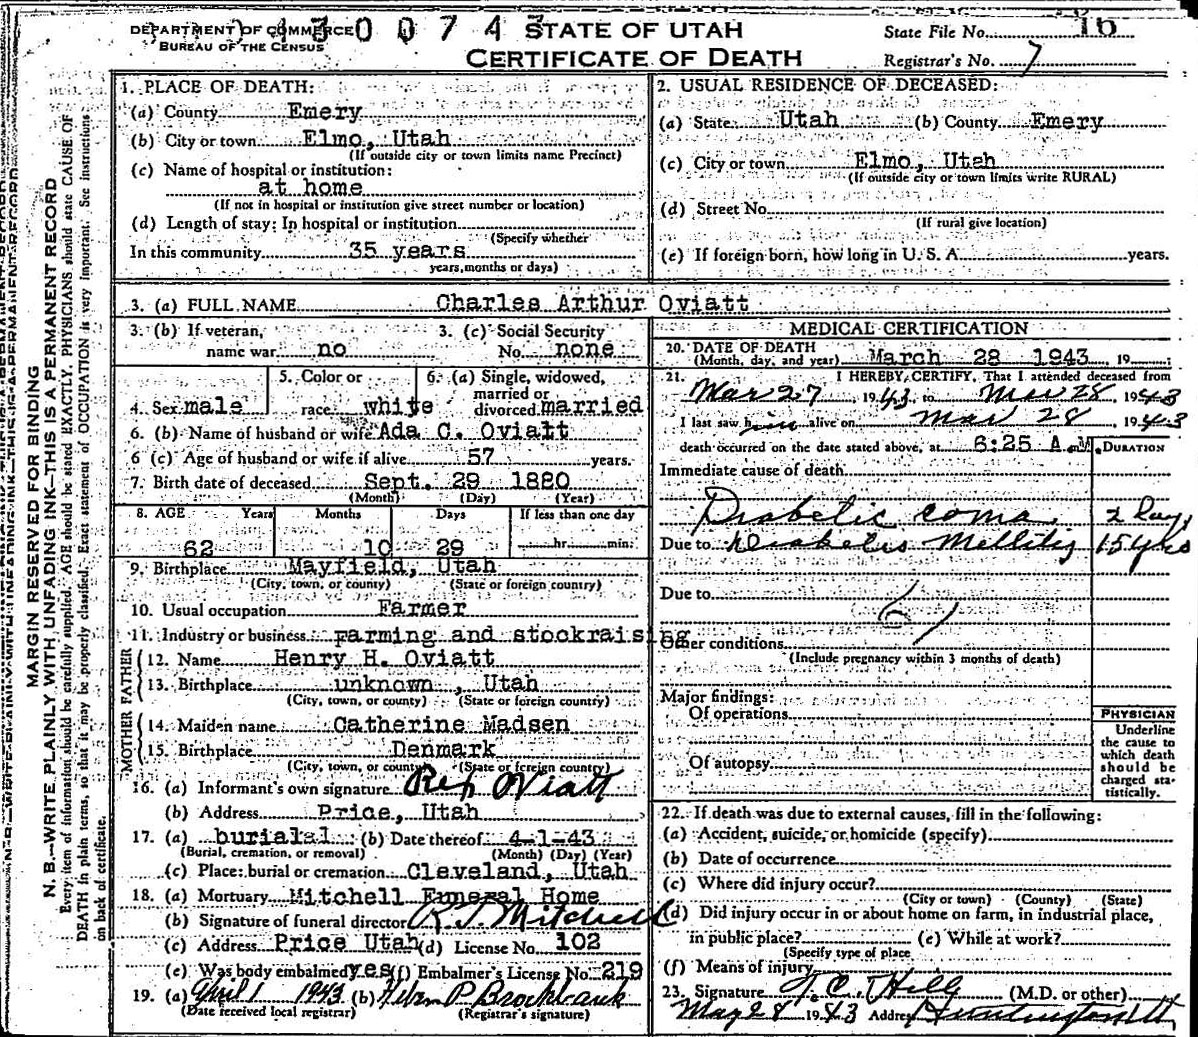 DEPARTMENT OF COMMERCE
BUREAU OF THE CENSUS
0 0 7 4
STATE OF UTAH
CERTIFICATE OF DEATH
State File No. 16
Registrar's No. 7
MARGIN RESERVED FOR BINDING
N. B.—WRITE PLAINLY WITH UNFADING INK—THIS IS A PERMANENT RECORD
Every item of information should be carefully supplied. AGE should be stated EXACTLY. PHYSICIANS should state CAUSE OF
DEATH in plain terms, so that it may be properly classified. Exact statement of OCCUPATION is very important. See instructions
on back of certificate.
1. PLACE OF DEATH:
(a) County Emery
(b) City or town Elmo, Utah
(If outside city or town limits name Precinct)
(c) Name of hospital or institution:
at home
(If not in hospital or institution give street number or location)
(d) Length of stay: In hospital or institution
(Specify whether
In this community 35 years
years, months or days)
2. USUAL RESIDENCE OF DECEASED:
(a) State Utah (b) County Emery
(c) City or town Elmo, Utah
(If outside city or town limits write RURAL)
(d) Street No.
(If rural give location)
(e) If foreign born, how long in U. S. A. years.
3. (a) FULL NAME Charles Arthur Oviatt
3. (b) If veteran, name war no
3. (c) Social Security No. none
4. Sex male
5. Color or race white
6. (a) Single, widowed, married or divorced married
6. (b) Name of husband or wife Ada C. Oviatt
6 (c) Age of husband or wife if alive 57 years.
7. Birth date of deceased Sept. 29 1880
(Month) (Day) (Year)
8. AGE Years Months Days If less than one day
62 10 29 hr. min.
9. Birthplace Mayfield, Utah
(City, town, or county) (State or foreign country)
10. Usual occupation Farmer
11. Industry or business farming and stockraising
FATHER
12. Name Henry H. Oviatt
13. Birthplace unknown, Utah
(City, town, or county) (State or foreign country)
MOTHER
14. Maiden name Catherine Madsen
15. Birthplace Denmark
(City, town, or county) (State or foreign country)
16. (a) Informant's own signature Rex Oviatt
(b) Address Price, Utah
17. (a) burialal (b) Date thereof 4-1-43
(Burial, cremation, or removal) (Month) (Day) (Year)
(c) Place: burial or cremation Cleveland, Utah
18. (a) Mortuary Mitchell Funeral Home
(b) Signature of funeral director R. J. Mitchell
(c) Address Price Utah (d) License No. 102
(e) Was body embalmed yes (f) Embalmer's License No. 219
19. (a) April 1 1943 (b) P Brockbank
(Date received local registrar) (Registrar's signature)
MEDICAL CERTIFICATION
20. DATE OF DEATH
(Month, day, and year) March 28 1943, 19
21. I HEREBY CERTIFY, That I attended deceased from
Mar 27, 1943, to Mar 28, 1943
I last saw him alive on Mar 28, 1943
death occurred on the date stated above, at 6:25 A.M.
DURATION
Immediate cause of death
Diabetic coma 2 Days
Due to Diabetes Mellitis 15 yrs
Due to
61
Other conditions
(Include pregnancy within 3 months of death)
Major findings:
Of operations
Of autopsy
PHYSICIAN
Underline
the cause to
which death
should be
charged sta-
tistically.
22. If death was due to external causes, fill in the following:
(a) Accident, suicide, or homicide (specify)
(b) Date of occurrence
(c) Where did injury occur?
(City or town) (County) (State)
(d) Did injury occur in or about home on farm, in industrial place,
in public place? (e) While at work?
(Specify type of place
(f) Means of injury
23. Signature T. C. Hill (M.D. or other)
May 28 1943 Address Huntington Ut